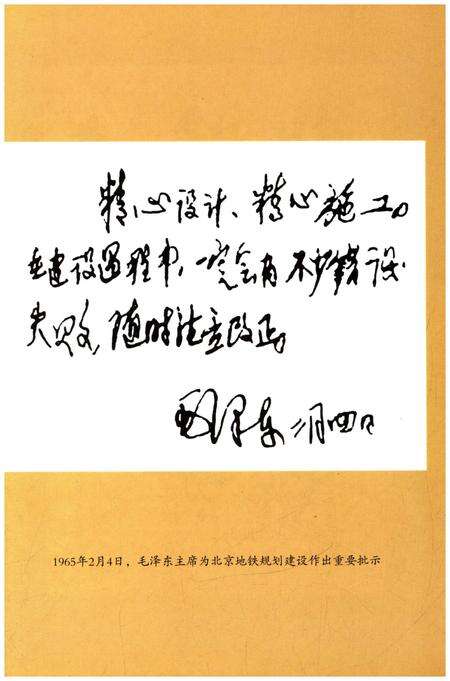 精心设计、精心施工。
在建设过程中，一定会有不少错误
失败，随时注意改正。
毛泽东 二月四日
1965年2月4日，毛泽东主席为北京地铁规划建设作出重要批示